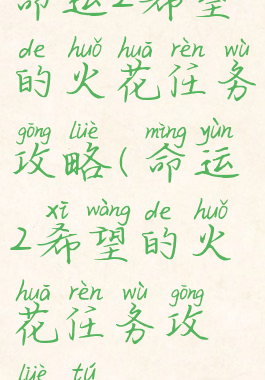 命运2希望
de huǒ huā rèn wù
的火花任务
gōng lüè mìng yùn
攻略(命运
xī wàng de huǒ
2希望的火
huā rèn wù gōng
花任务攻
lüè tú